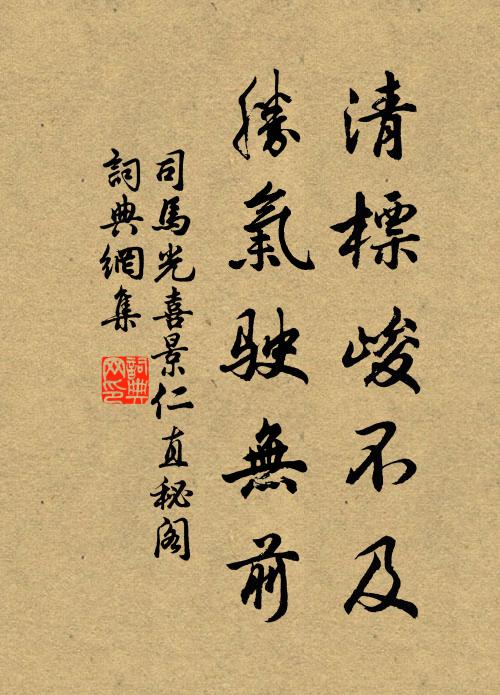 清標峻不及
勝氣駛無前
司馬光喜景仁直秘阁
詞典網集
詞典網印